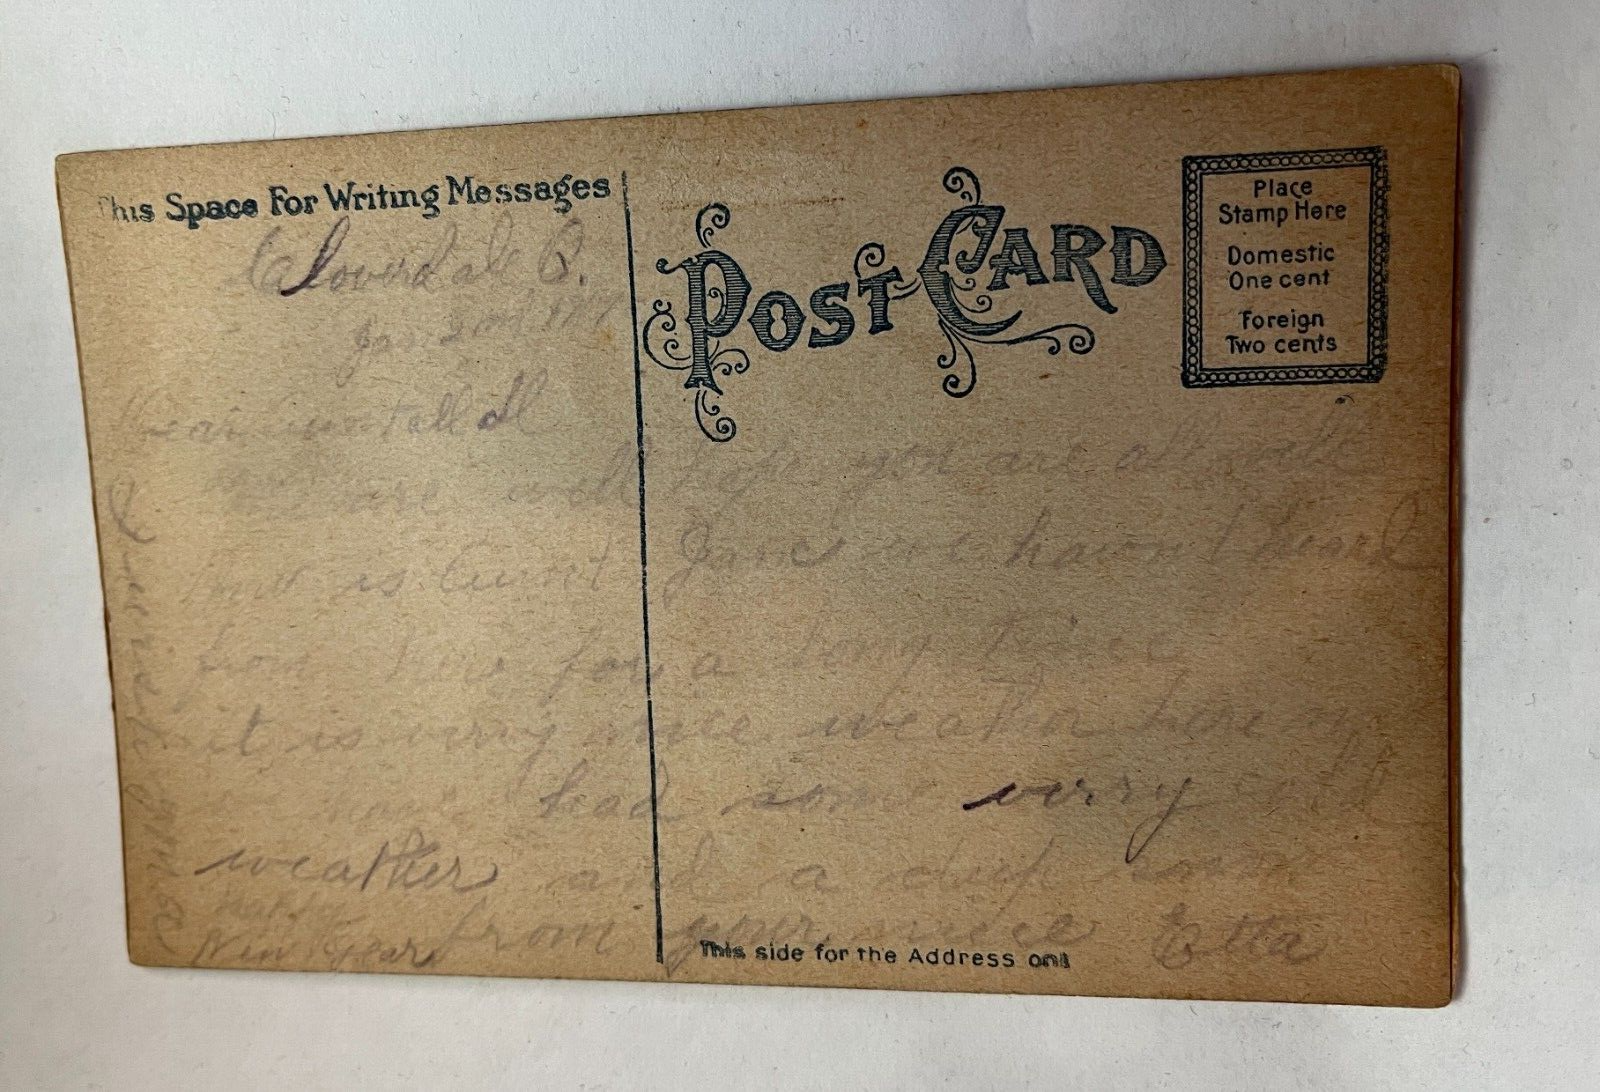 This Space For Writing Messages
POST CARD
Place
Stamp Here
Domestic
One cent
Foreign
Two cents
Cloverdale B.
Jan 2nd
Dear Aunt all
are well hope you are all well
how is Aunt Jane we havent heard
from her for a long time
it is verry nice weather here
have had some verry cold
weather and a deep snow
from your niece Etta
Happy
New Year
This side for the Address onl